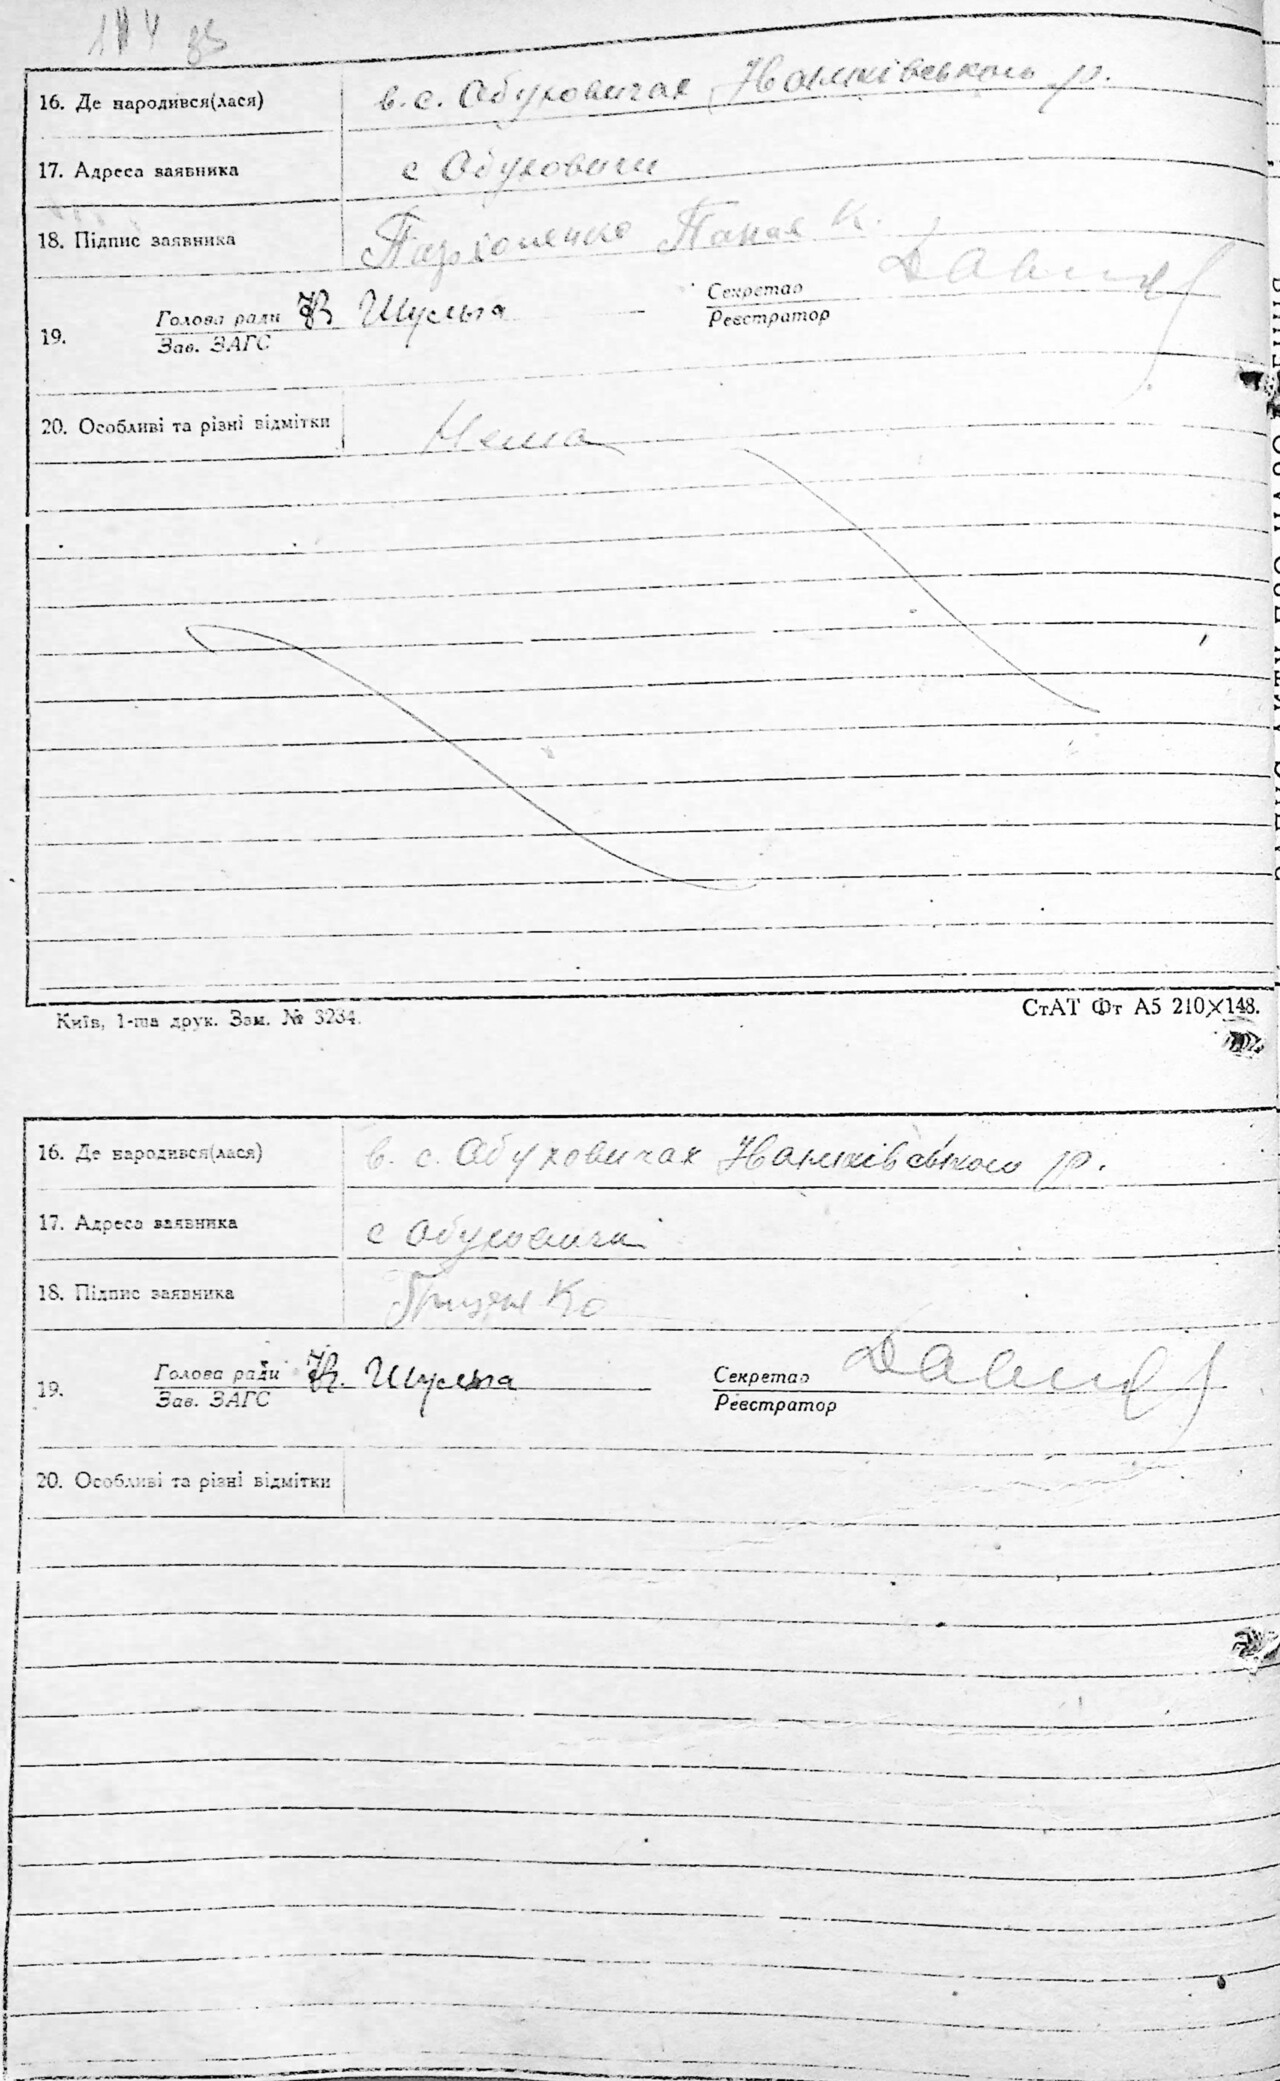 16. Де народився(лася) в. с. Обуховичах Іванківського р.
17. Адреса заявника с Обуховичи
18. Підпис заявника Пархоменко Панас К.
19. Голова ради Шульга Секретар
Зав. ЗАГС Реєстратор
20. Особливі та різні відмітки Нема
Київ, 1-ша друк. Зам. № 3234. СтАТ Фт А5 210×148.
16. Де народився(лася) в. с. Обуховичах Іванківського р.
17. Адреса заявника с Обуховичи
18. Підпис заявника Гриценко
19. Голова ради Шульга Секретар
Зав. ЗАГС Реєстратор
20. Особливі та різні відмітки